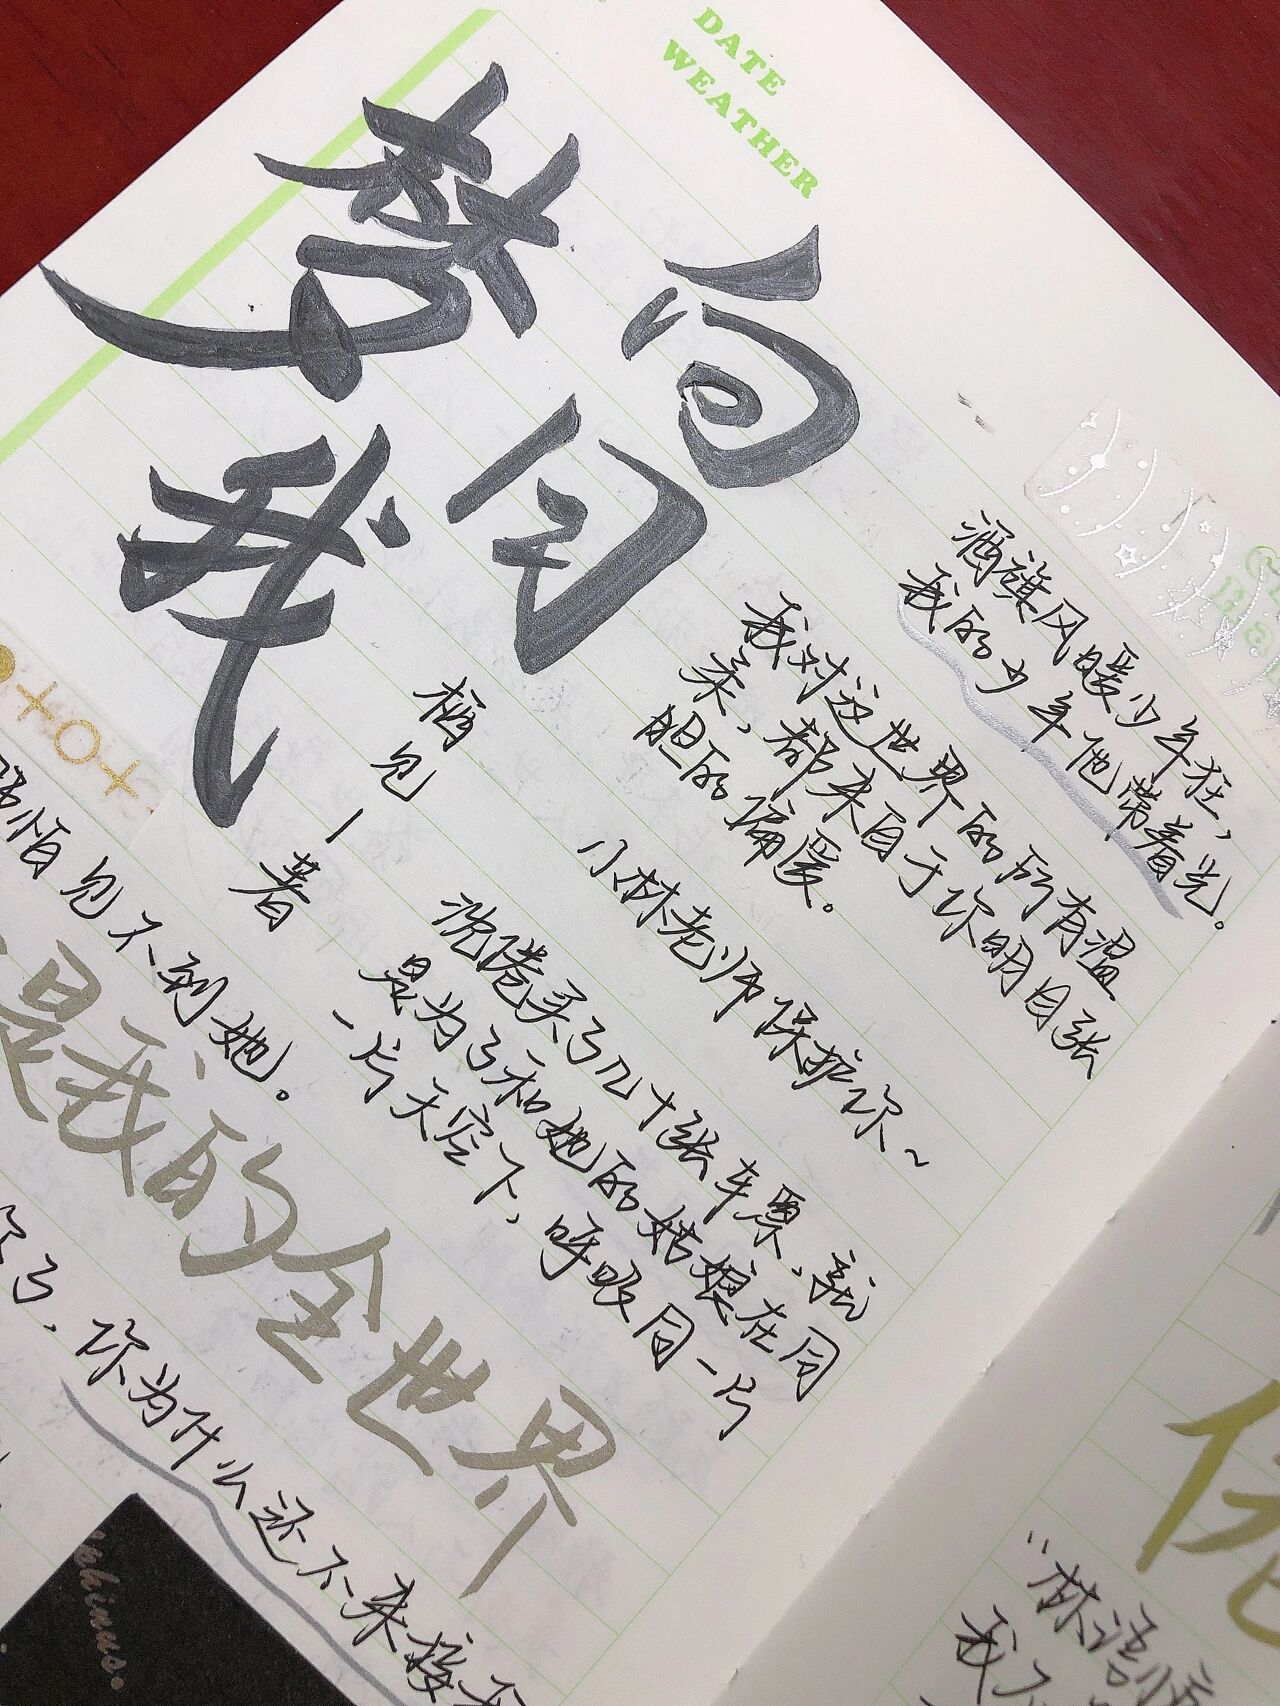 DATE
WEATHER
白日
梦我
栖见一著
酒旗风暖少年狂，
我的少年他带着光。
我对这世界的所有温
柔，都来自于你明目张
胆的偏爱。
小林老师保护你~
沈倦买了几十张车票，就
是为了和她的姑娘在同
一片天空下，呼吸同一片
怕见不到她。
是我的全世界
你了，你为什么还不来接我
"林语惊
我不